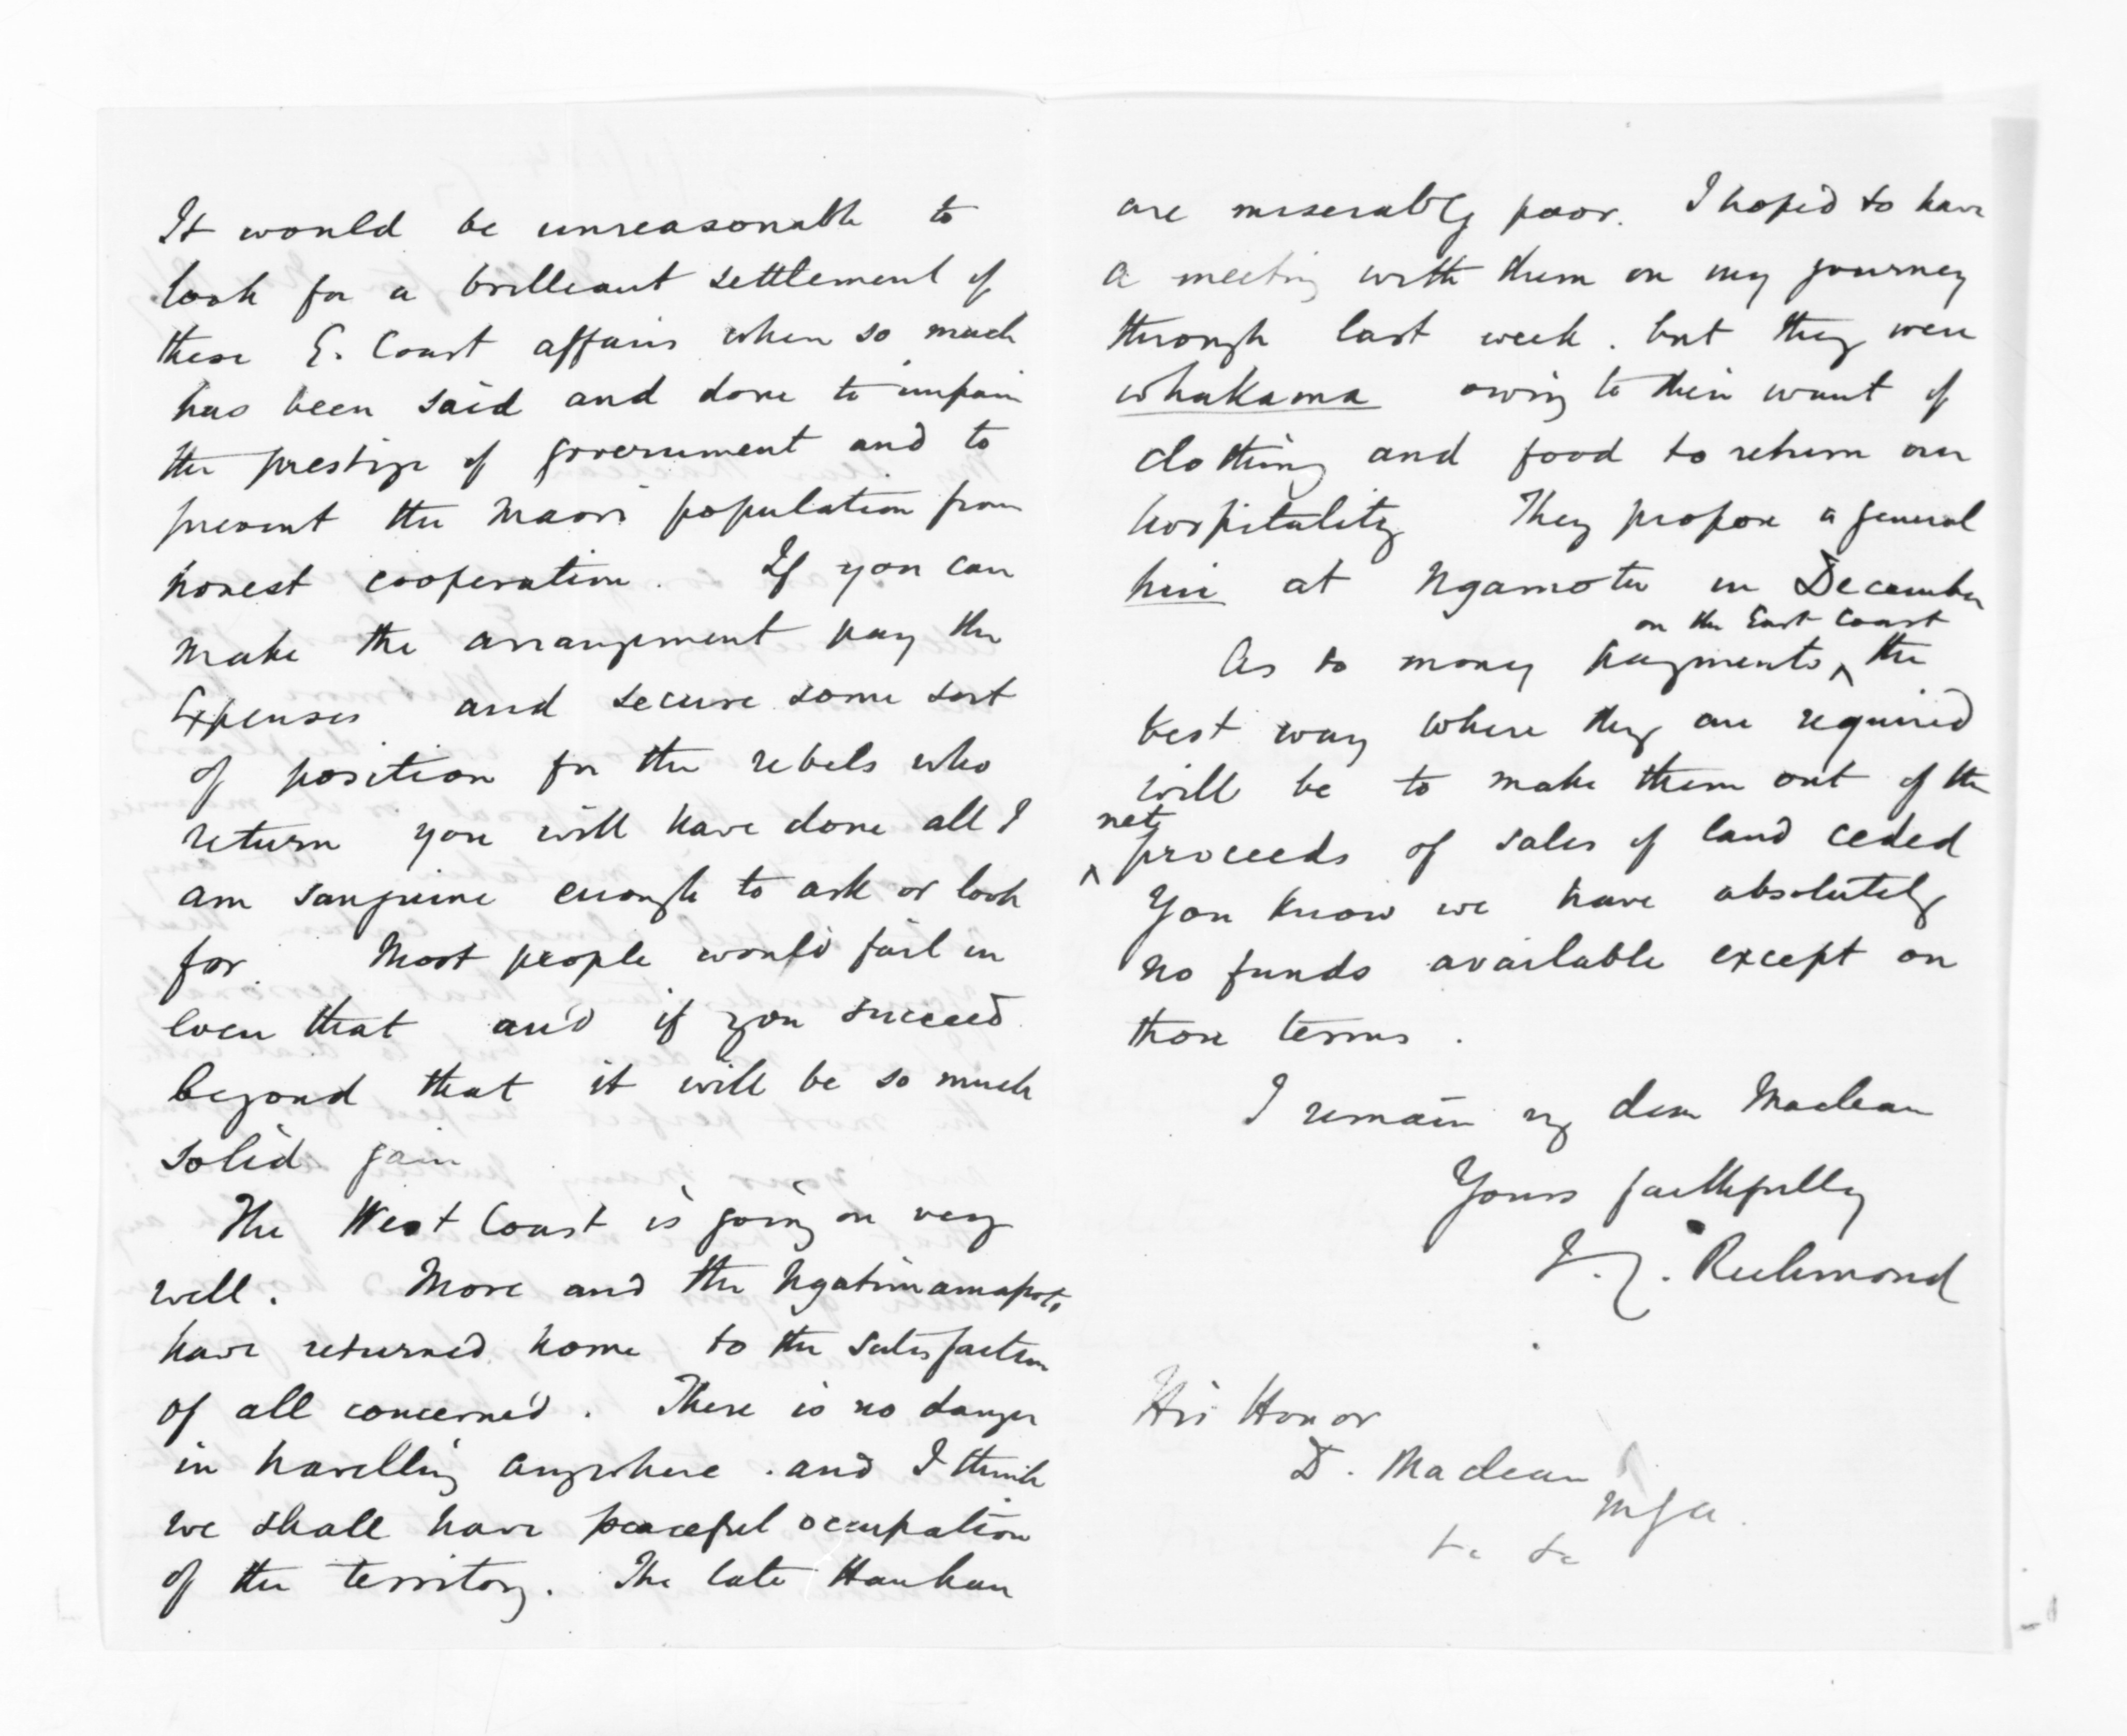 It would be unreasonable to
look for a brilleant settlement of
these E. Coast affairs when so much
has been said and done to impair
the prestige of government and to
prevent the Maori population from
honest cooperation. If you can
make the arrangement pay the
Expenses and secure some sort
of position for the rebels who
return you will have done all I
am sanguine enough to ask or look
for. Most people would fail in
even that and if you succeed
beyond that it will be so much
solid gain
The West Coast is going on very
well. More and the Ngatimamapoto
have returned home to the satisfaction
of all concerned. There is no danger
in travelling anywhere. and I think
we shall have peaceful occupation
of the territory. The late Hauhau
are miserably poor. I hoped to have
a meeting with them on my journey
through last week. but they were
whakama owing to their want of
clothing and food to return our
hospitality They propose a general
hui at Ngamotu in December
on the East Coast
As to money payments, the
best way where they are required
will be to make them out of the
net
proceeds of sales of land ceded
You know we have absolutely
no funds available except on
those terms.
I remain my dear Maclean
Yours faithfully
J.C. Richmond
His Honor
D. Maclean
MGA.
&c &c